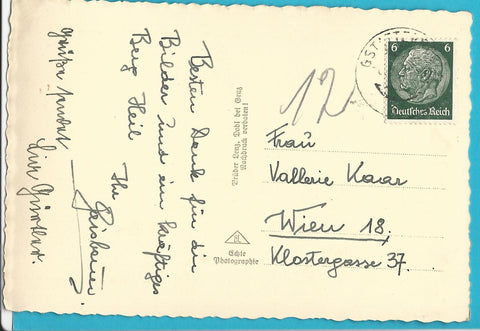 Besten Dank für die
Bilder und ein kräftiges
Berg Heil Ihr
Grüße sendet
Brüder Lenz, Dobl bei Graz
Nachdruck verboten!
Echte
Photographie
12
GSTATTERB
6 6
Deutsches Reich
Frau
Vallerie Kaar
Wien 18,
Klostergasse 37.